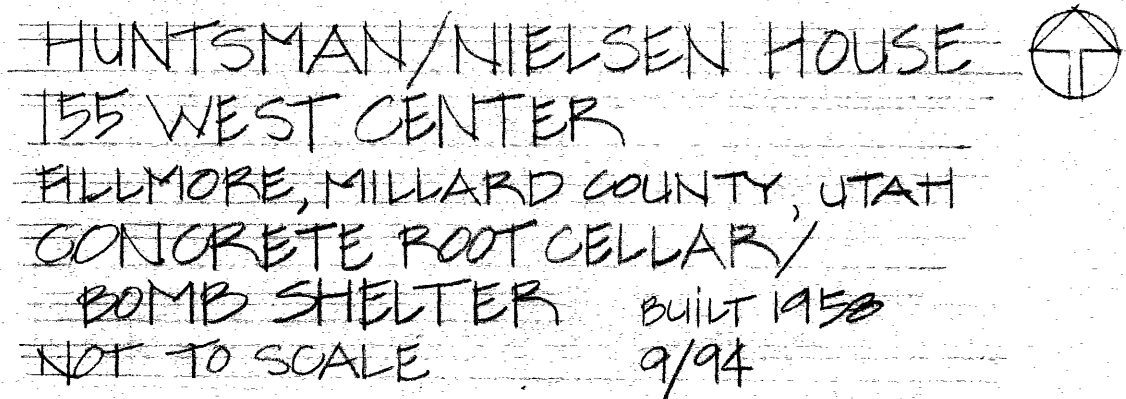 HUNTSMAN/NIELSEN HOUSE
155 WEST CENTER
FILLMORE, MILLARD COUNTY, UTAH
CONCRETE ROOT CELLAR/
BOMB SHELTER BUILT 1958
NOT TO SCALE 9/94